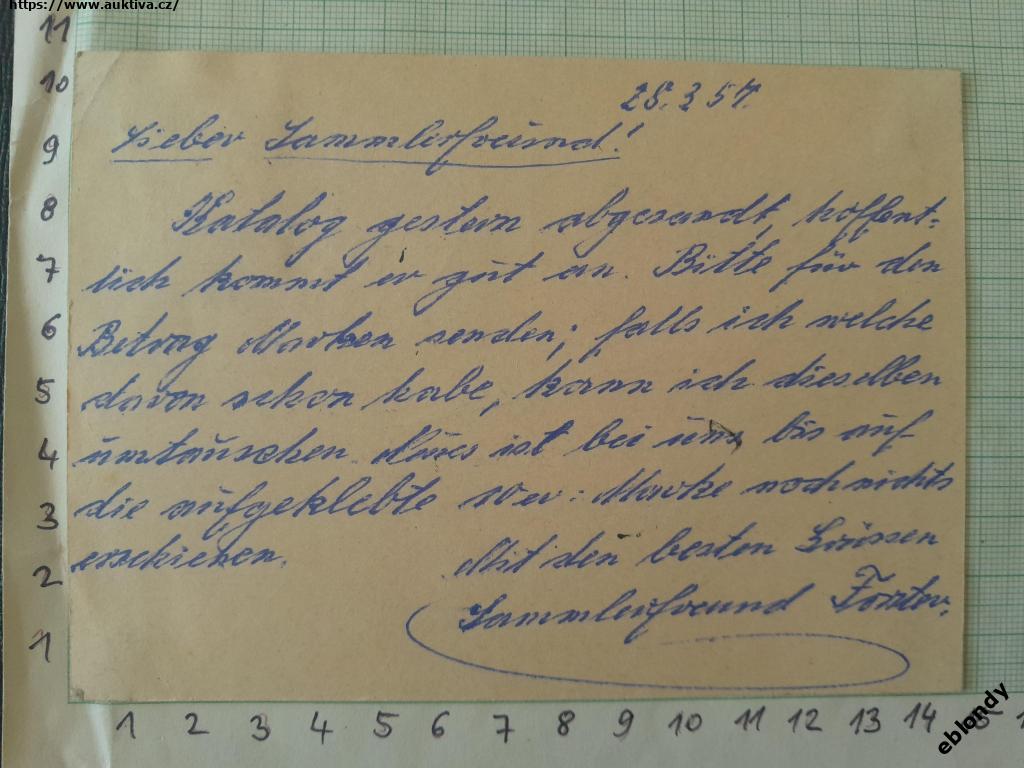 https://www.auktiva.cz/
28.3 57.
Lieber Sammlerfreund!
Katalog gestern abgesandt, hoffent-
lich kommt er gut an. Bitte für den
Betrag Marken senden; falls ich welche
davon schon habe, kann ich dieselben
umtauschen. Neues ist bei uns bis auf
die aufgeklebte 10er: Marke noch nichts
erschienen.
Mit den besten Grüssen
Sammlerfreund Forster.
11
10
9
8
7
6
5
4
3
2
1
1 2 3 4 5 6 7 8 9 10 11 12 13 14 15
eblondy